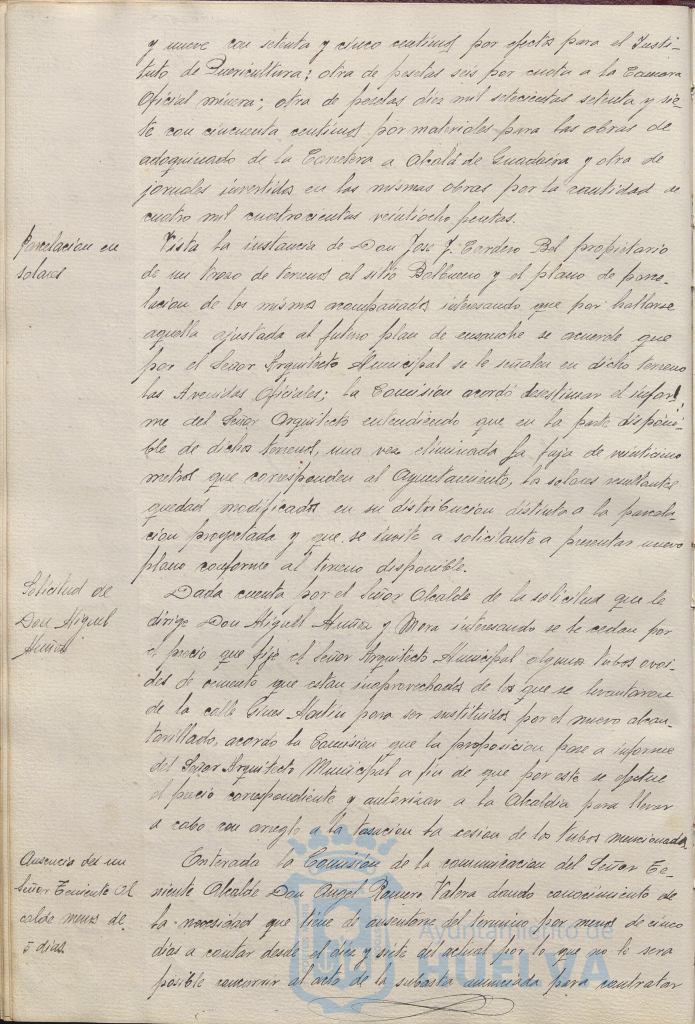 y nueve con setenta y cinco centimos por efectos para el Insti-
tuto de Puericultura; otra de pesetas seis por cuota a la Camara
Oficial minera; otra de pesetas diez mil setecientas setenta y sie-
te con cincuenta centimos por materiales para las obras de
adoquinado de la Carretera a Alcalá de Guadaira y otra de
jornales invertidos en las mismas obras por la cantidad de
cuatro mil cuatrocientas veintiocho pesetas.
Parcelacion en
solares
Vista la instancia de Don Jose J. Cordero Bel propietario
de un trozo de terrenos al sitio Balbueno y el plano de parce-
lacion de los mismos acompañados interesando que por hallarse
aquella ajustada al futuro plan de ensanche se acuerde que
por el Señor Arquitecto Municipal se le señalen en dicho terreno
las Avenidas Oficiales; la Comision acordó desestimar el infor-
me del Señor Arquitecto entendiendo que en la parte disponi-
ble de dichos terrenos, una vez eliminada la faja de veinticinco
metros que corresponden al Ayuntamiento, la solares resultantes
quedan modificados en su distribucion distinta a la parcela-
cion proyectada y que se invite a solicitante a presentar nuevo
plano conforme al terreno disponible.
Solicitud de
Don Miguel
Muñoz
Dada cuenta por el Señor Alcalde de la solicitud que le
dirige Don Miguel Muñoz y Mora interesando se le cedan por
el precio que fije el Señor Arquitecto Municipal algunos tubos ovoi-
des de cemento que estan inaprovechados de los que se levantaron
de la calle Gines Martin para ser sustituidos por el nuevo alcan-
tarillado, acordo la Comision que la proposicion pase a informe
del Señor Arquitecto Municipal a fin de que por este se efectue
el precio correspondiente y autorizar a la Alcaldia para llevar
a cabo con arreglo a la tasacion la cesion de los tubos mencionados
Ausencia de un
Señor Teniente Al
calde menos de
5 dias.
Enterada la Comision de la comunicacion del Señor Te-
niente Alcalde Don Angel Romero Valera dando conocimiento de
la necesidad que tiene de ausentarse del termino por menos de cinco
dias a contar desde el dies y siete del actual por lo que no le sera
posible concurrir al acto de la subasta anunciada para contratar
Ayuntamiento de
HUELVA